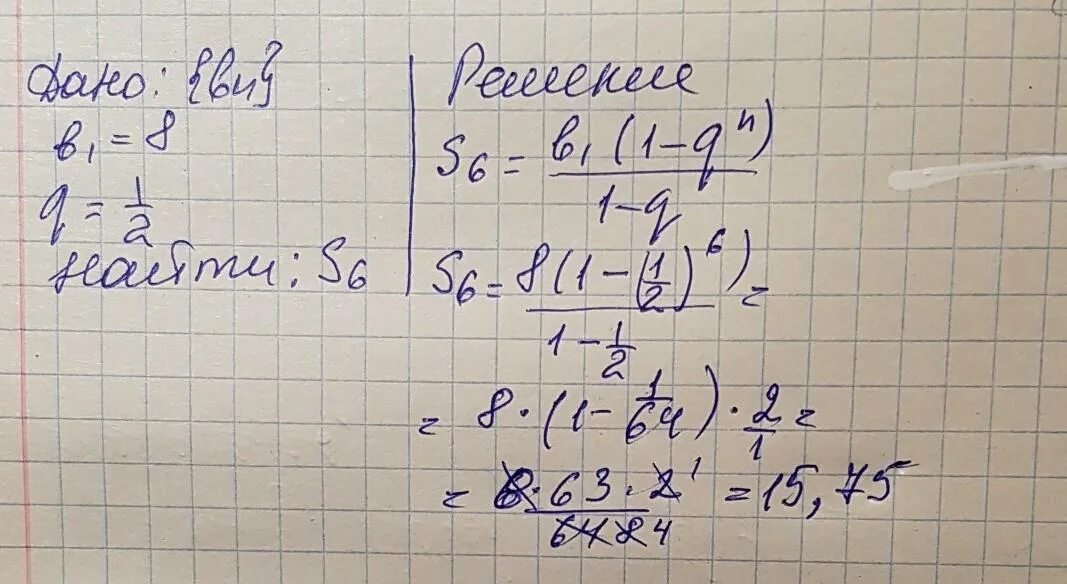 Дано: {bn}
b₁ = 8
q = 1/2
Найти: S₆
Решение
S₆ = b₁(1-qⁿ)/1-q
S₆ = 8(1-(1/2)⁶)/1-1/2 =
= 8·(1-1/64)·2/1 =
= 8·63·2 1/64 8 4 = 15,75